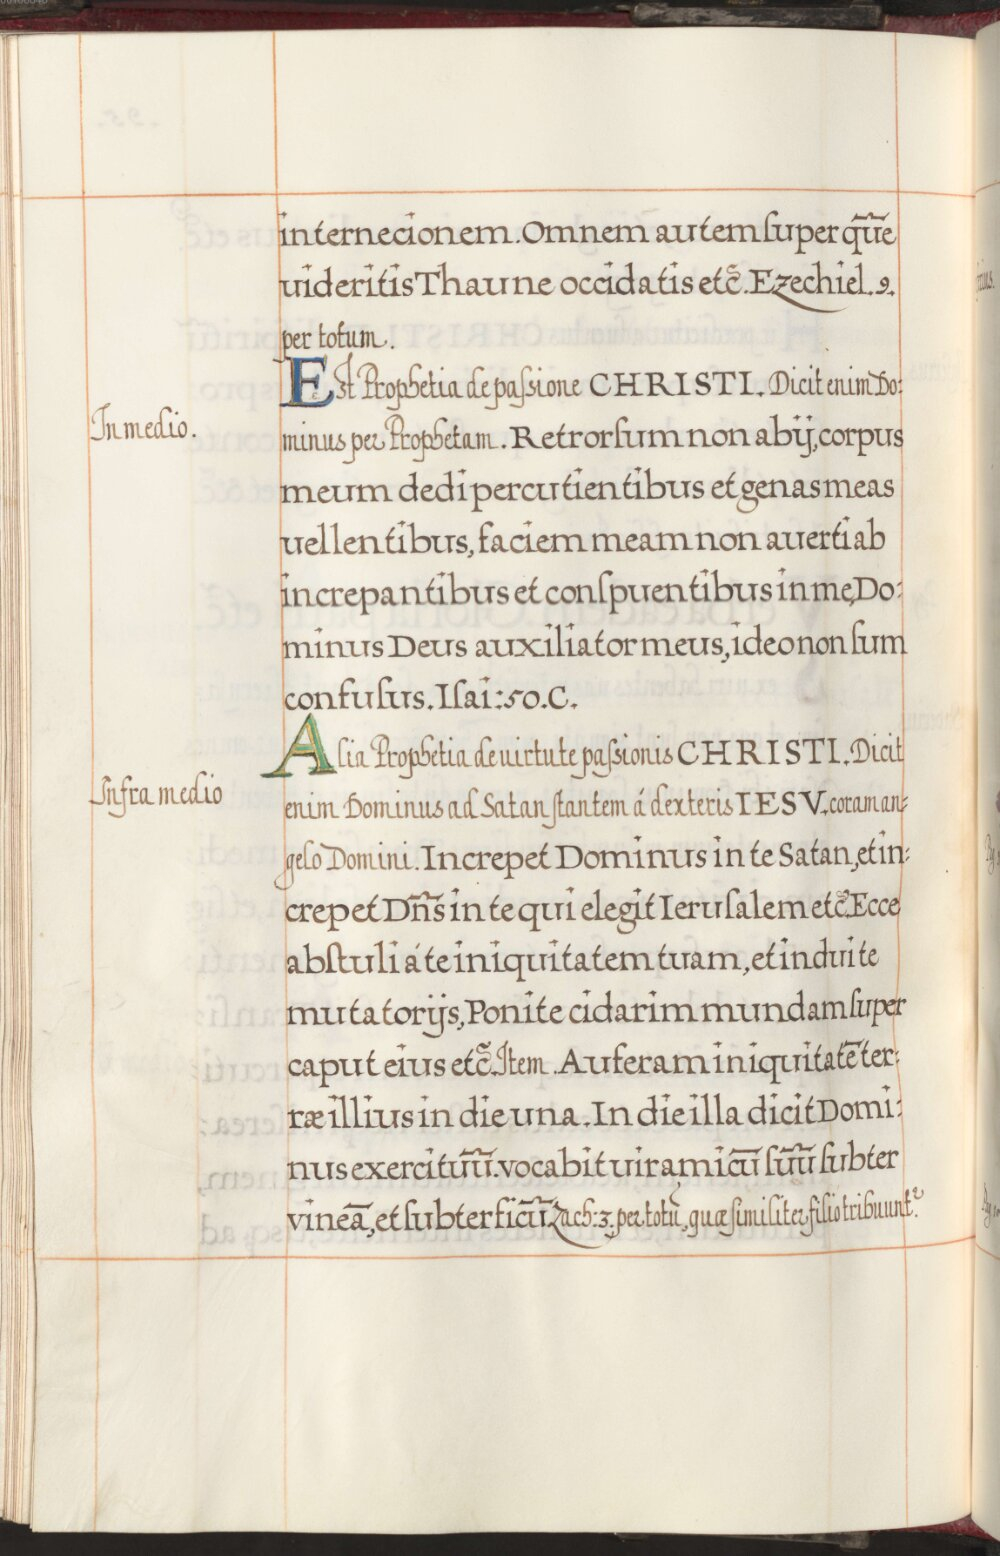 internecionem. Omnem autem super quē
uideritis Thau ne occidatis etc̃. Ezechiel. 9.
per totum.
Est Prophetia de paſsione CHRISTI. Dicit enim Do:
In medio.
minus per Prophetam. Retrorſum non abij, corpus
meum dedi percutientibus et genas meas
uellentibus, faciem meam non auerti ab
increpantibus et conſpuentibus in me, Do:
minus Deus auxiliator meus, ideo non ſum
confuſus. Iſai: 50. C.
Alia Prophetia de uirtute paſsionis CHRISTI. Dicit
Infra medio
enim Dominus ad Satan ſtantem á dexteris IESV. coram an:
gelo Domini. Increpet Dominus in te Satan, et in:
crepet Dñs in te qui elegit Ieruſalem etc̃. Ecce
abſtuli á te iniquitatem tuam, et indui te
mutatorijs, Ponite cidarim mundam ſuper
caput eius etc̃. Item. Auferam iniquitatē ter:
ræ illius in die una. In die illa dicit Domi:
nus exercituū. vocabit uir amicū ſuū ſubter
vineā, et ſubter ficū. Zach: 3. per totū, quæ similiter filio tribuunt᷑.